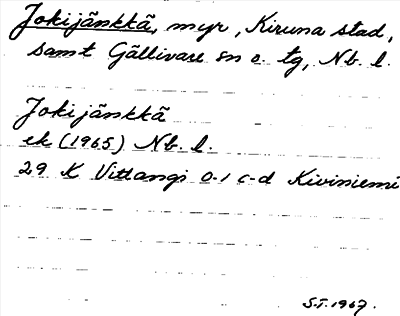 Jokijänkkä, myr, Kiruna stad,
samt Gällivare sn o. tg, Nb. l.
Jokijänkkä
ek (1965) Nb. l.
29 K Vittangi 0-1 c-d Kiviniemi
S.I. 1967.